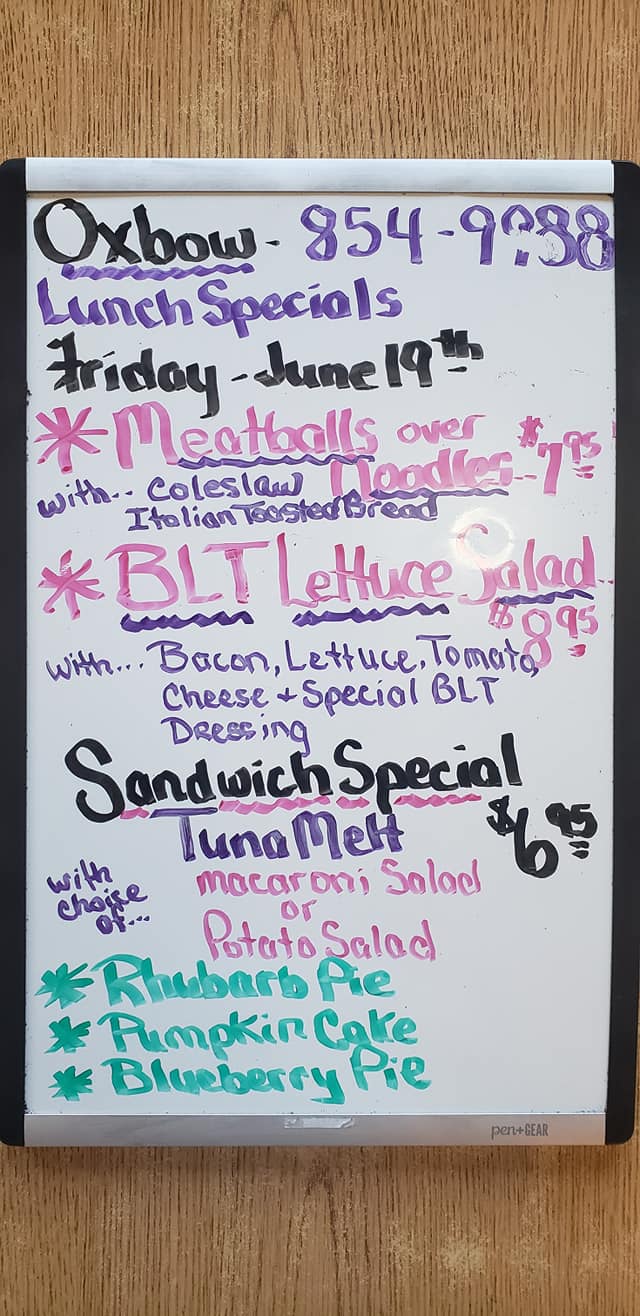 Oxbow - 854-9988
Lunch Specials
Friday - June 19th
* Meatballs over
Noodles - $7.95
with.. Coleslaw
Italian Toasted Bread
* BLT Lettuce Salad
$8.95
with... Bacon, Lettuce, Tomato,
Cheese + Special BLT
Dressing
Sandwich Special
Tuna Melt $6.95
with choice of... macaroni Salad
or
Potato Salad
* Rhubarb Pie
* Pumpkin Cake
* Blueberry Pie
pen+GEAR